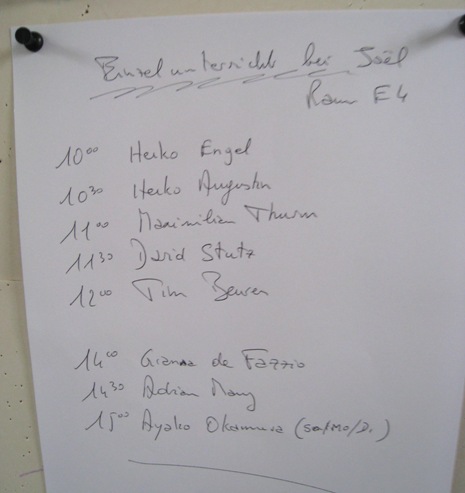 Einzelunterricht bei Joël
Raum E4
10⁰⁰ Heiko Engel
10³⁰ Heiko Augustin
11⁰⁰ Maximilian Thurm
11³⁰ David Stutz
12⁰⁰ Tim Beuren
14⁰⁰ Gianna de Fazzio
14³⁰ Adrian
15⁰⁰ Ayako Okamura (Sa/Mo/Di)